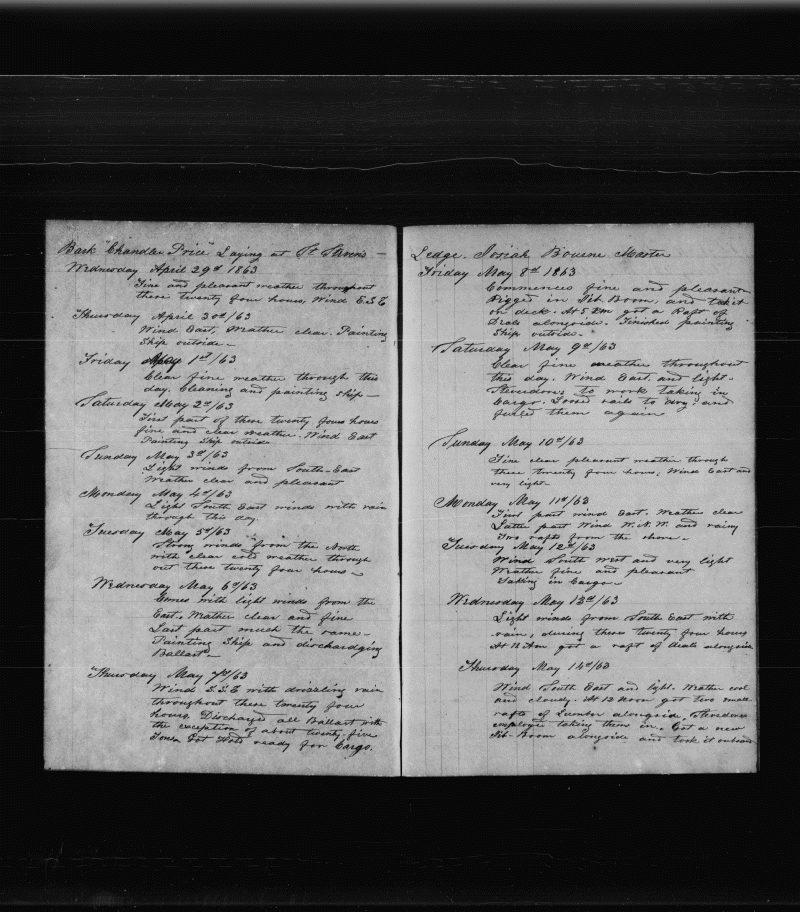 Bark "Chandler Price" Laying at St. Stevens —
Wednesday April 29d 1863
Fine and pleasant weather throughout
these twenty four hours, Wind E.S.E
Thursday April 30d/63
Wind East, Weather clear. Painting
Ship outside —
Friday May 1st/63
Clear fine weather through this
day. Cleaning and painting ship —
Saturday May 2d/63
First part of these twenty fours hours
fine and clear weather. Wind East
Painting Ship outside
Sunday May 3d/63
Light winds from South-East
Weather clear and pleasant
Monday May 4d/63
Light South East winds with rain
through this day.
Tuesday May 5d/63
Strong winds from the North
with clear cold weather through
out these twenty four hours —
Wednesday May 6d/63
Comes with light winds from the
East. Weather clear and fine
Last part much the same —
Painting Ship and dischardging
Ballast —
Thursday May 7d/63
Wind S.S.E with drizzling rain
throughout these twenty four
hours. Discharged all Ballast with
the exception of about twenty-five
Tons. Got ready for Cargo.
Ledge. Josiah Bourne Master
Friday May 8d 1863
Commences fine and pleasant
Rigged in Jib Boom, and took it
on deck. At 5 Pm got a Raft of
Deals alongside. Finished painting
Ship outside.
Saturday May 9d/63
Clear fine weather throughout
this day. Wind East, and light.
Stevedores to work taking in
Cargo. Loosed sails to dry: and
furled them again
Sunday May 10d/63
Fine clear pleasant weather through
these twenty four hours; Wind East and
very light.
Monday May 11d/63
First part wind East. Weather clear
Latter part Wind W.N.W. and rainy
Two rafts from the shore.
Tuesday May 12d/63
Wind South West and very light
Weather fine and pleasant
Taking in Cargo.
Wednesday May 13d/63
Light winds from South East with
rain, during these twenty four hours
At 11 Am got a raft of deals alongside
Thursday May 14d/63
Wind South East and light. Weather cool
and cloudy. At 12 Noon got two small
rafts of Lumber alongside, Stevedores
employed taking them in. Got a new
Jib-Boom alongside and took it onboard